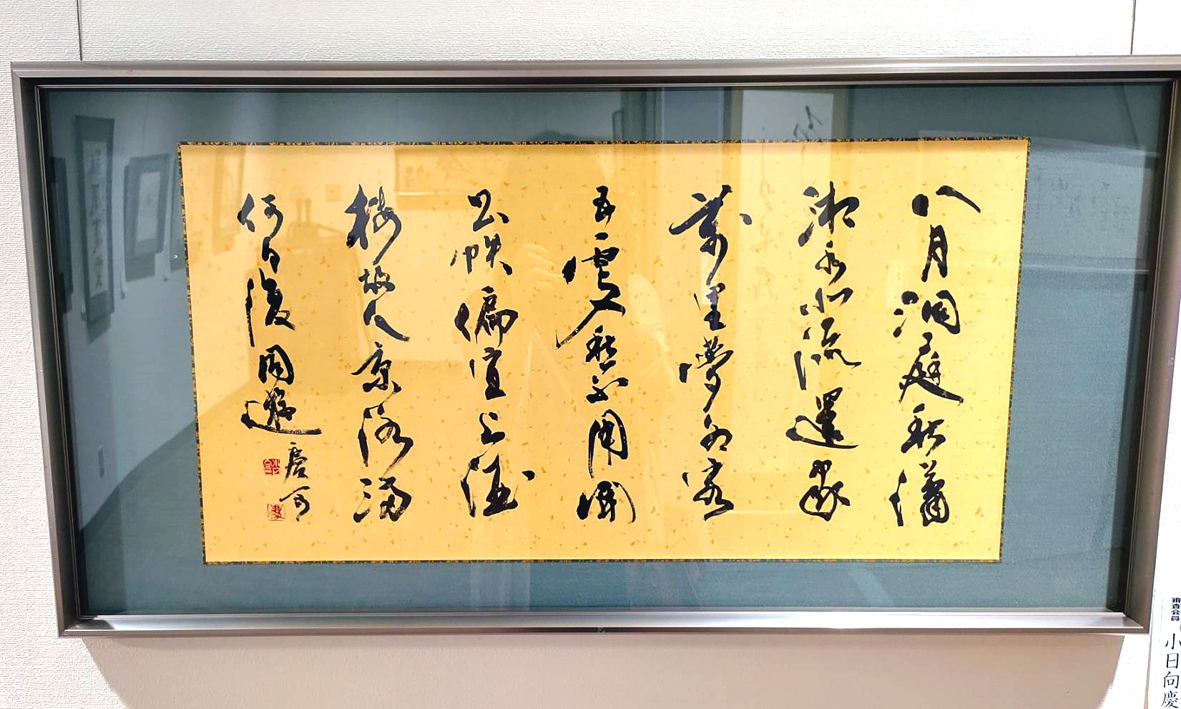 八月洞庭秋瀟
湘水北流還家
萬里夢為客
五更愁不用開
書帙偏宜上酒
樓故人京洛滿
何日復同遊
審査会員
小日向慶